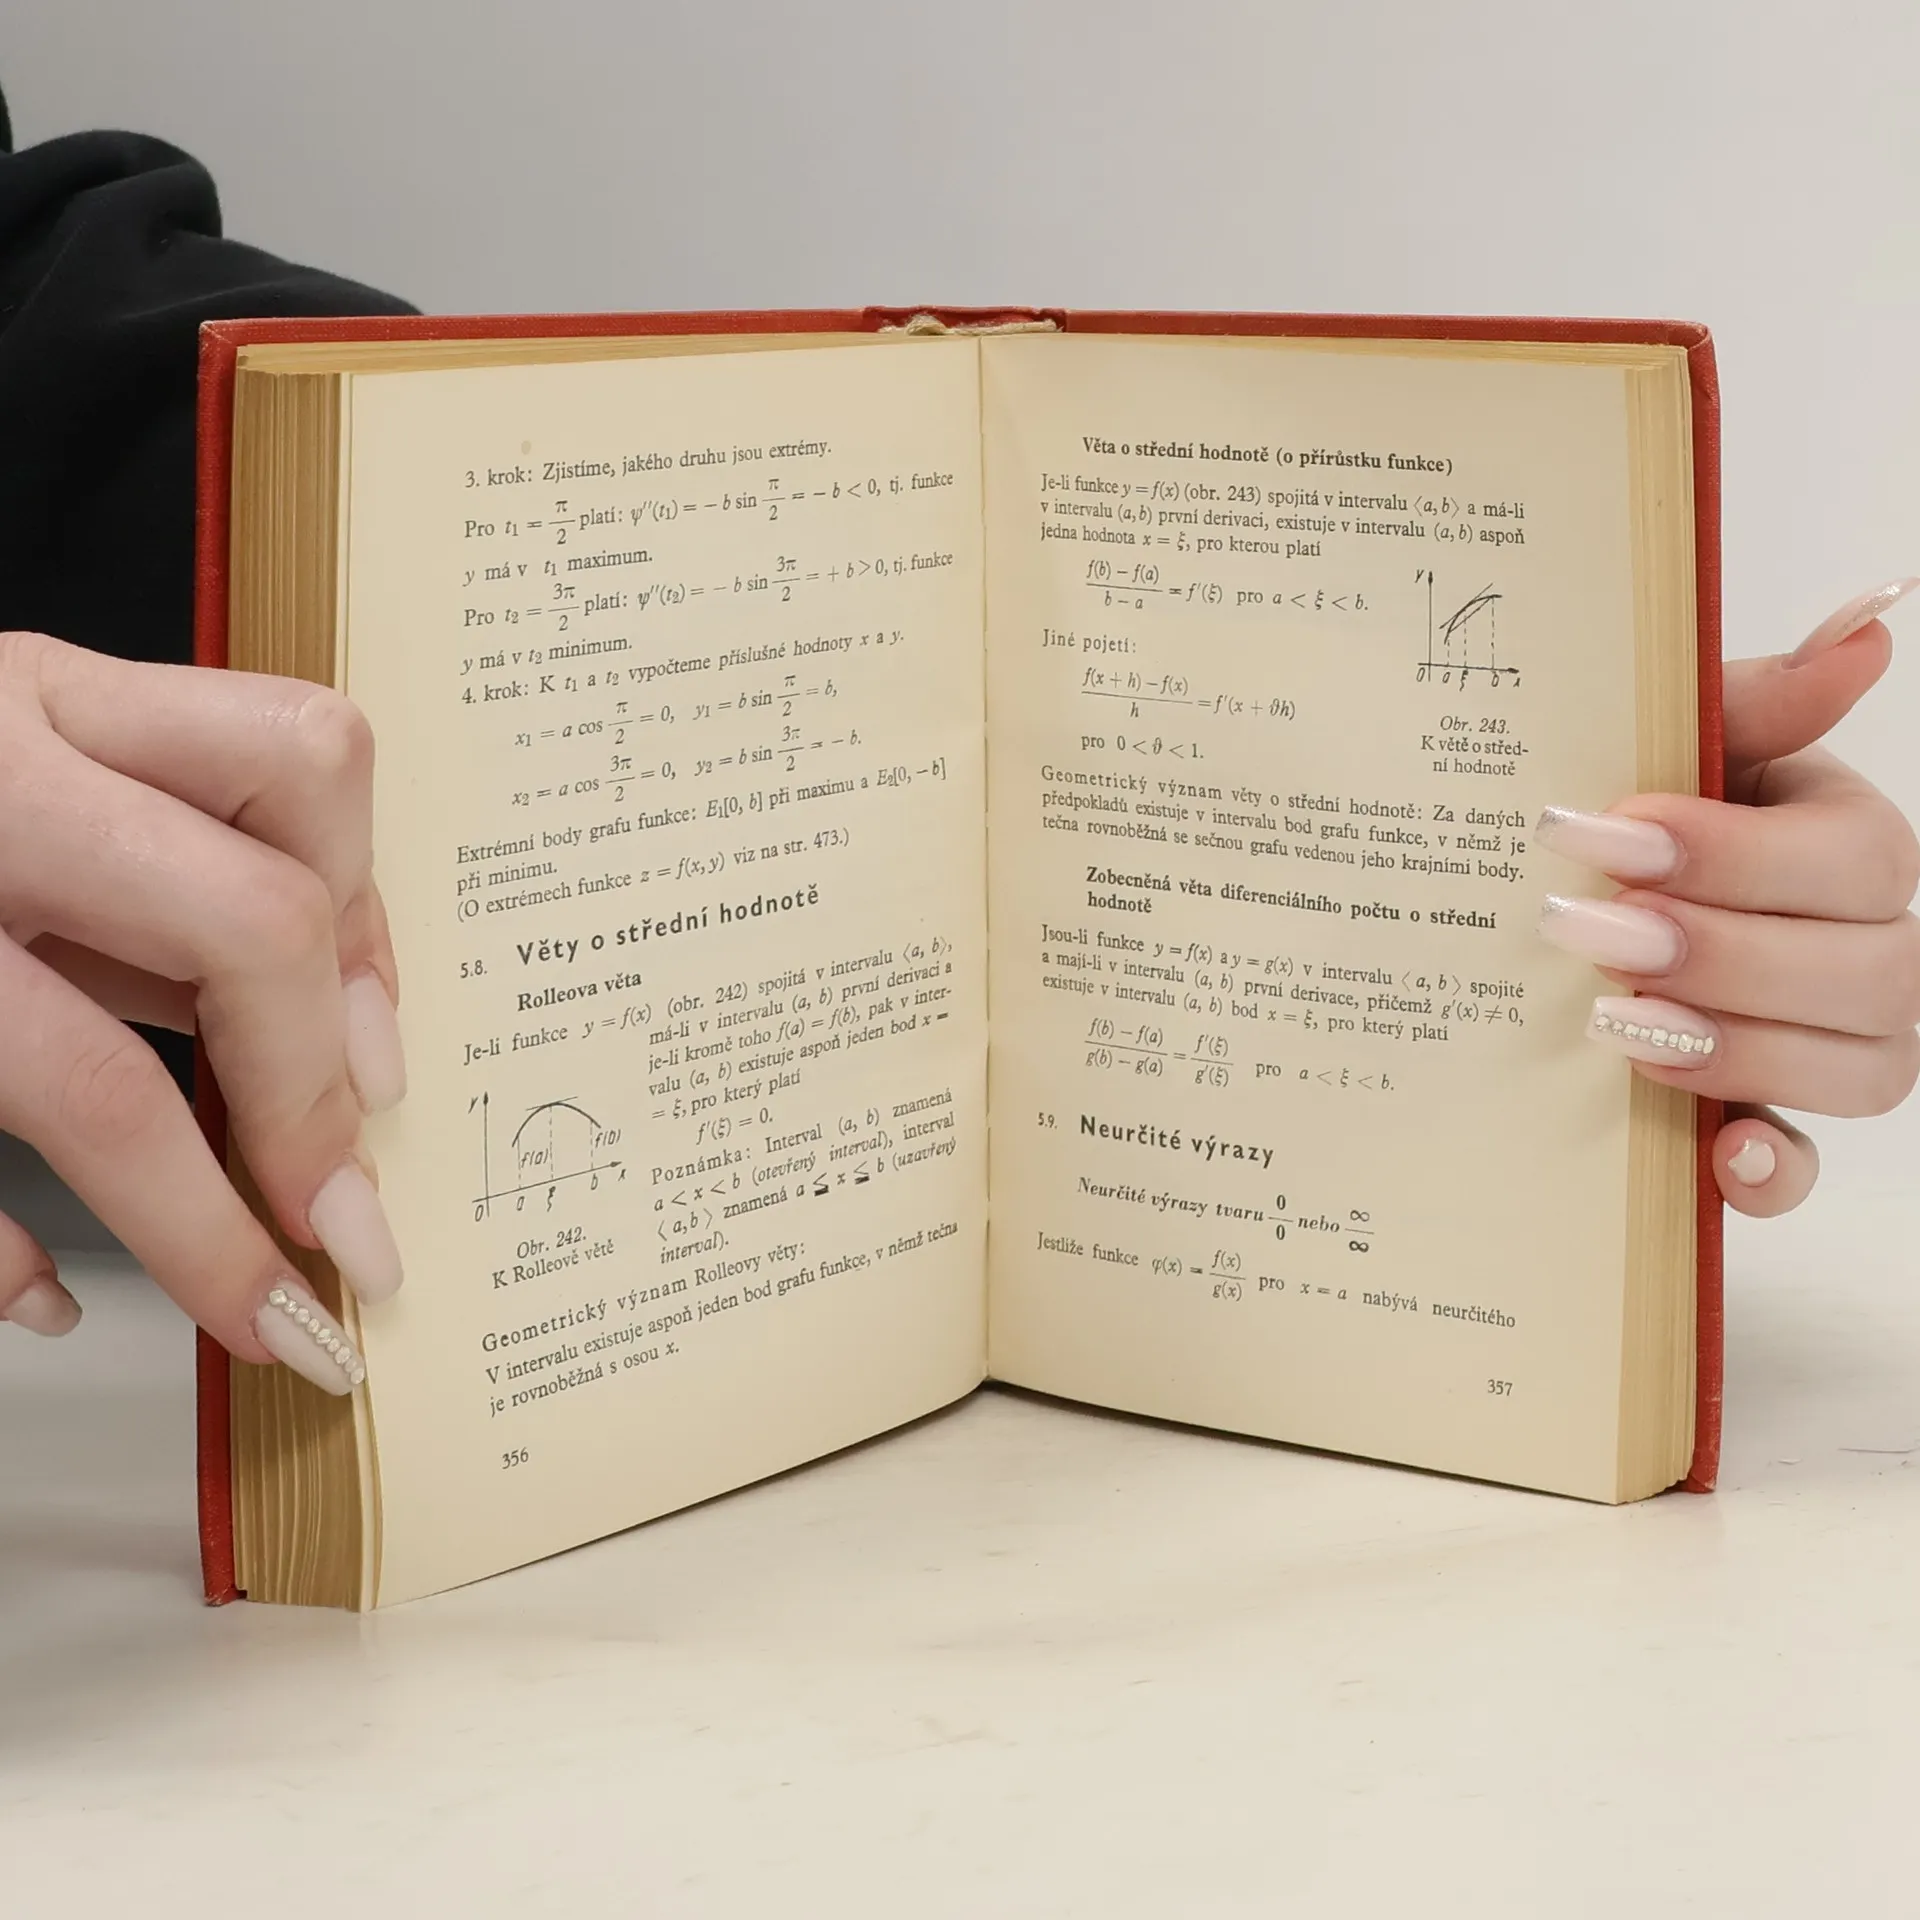 3. krok: Zjistíme, jakého druhu jsou extrémy.
Pro t₁ = π/2 platí: ψ''(t₁) = − b sin π/2 = − b < 0, tj. funkce
y má v t₁ maximum.
Pro t₂ = 3π/2 platí: ψ''(t₂) = − b sin 3π/2 = + b > 0, tj. funkce
y má v t₂ minimum.
4. krok: K t₁ a t₂ vypočteme příslušné hodnoty x a y.
x₁ = a cos π/2 = 0, y₁ = b sin π/2 = b,
x₂ = a cos 3π/2 = 0, y₂ = b sin 3π/2 = − b.
Extrémní body grafu funkce: E₁[0, b] při maximu a E₂[0, − b]
při minimu.
(O extrémech funkce z = f(x, y) viz na str. 473.)
5.8. Věty o střední hodnotě
Rolleova věta
Je-li funkce y = f(x) (obr. 242) spojitá v intervalu ⟨a, b⟩,
má-li v intervalu (a, b) první derivaci a
je-li kromě toho f(a) = f(b), pak v inter-
valu (a, b) existuje aspoň jeden bod x =
= ξ, pro který platí
f'(ξ) = 0.
Poznámka: Interval (a, b) znamená
a < x < b (otevřený interval), interval
⟨a, b⟩ znamená a ≦ x ≦ b (uzavřený
interval).
y f(a) f(b)
0 a ξ b x
Obr. 242.
K Rolleově větě
Geometrický význam Rolleovy věty:
V intervalu existuje aspoň jeden bod grafu funkce, v němž tečna
je rovnoběžná s osou x.
356
Věta o střední hodnotě (o přírůstku funkce)
Je-li funkce y = f(x) (obr. 243) spojitá v intervalu ⟨a, b⟩ a má-li
v intervalu (a, b) první derivaci, existuje v intervalu (a, b) aspoň
jedna hodnota x = ξ, pro kterou platí
f(b) − f(a)/b − a = f'(ξ) pro a < ξ < b.
Jiné pojetí:
f(x + h) − f(x)/h = f'(x + ϑh)
pro 0 < ϑ < 1.
y
0 a ξ b x
Obr. 243.
K větě o střed-
ní hodnotě
Geometrický význam věty o střední hodnotě: Za daných
předpokladů existuje v intervalu bod grafu funkce, v němž je
tečna rovnoběžná se sečnou grafu vedenou jeho krajními body.
Zobecněná věta diferenciálního počtu o střední
hodnotě
Jsou-li funkce y = f(x) a y = g(x) v intervalu ⟨a, b⟩ spojité
a mají-li v intervalu (a, b) první derivace, přičemž g'(x) ≠ 0,
existuje v intervalu (a, b) bod x = ξ, pro který platí
f(b) − f(a)/g(b) − g(a) = f'(ξ)/g'(ξ) pro a < ξ < b.
5.9. Neurčité výrazy
Neurčité výrazy tvaru 0/0 nebo ∞/∞
Jestliže funkce φ(x) = f(x)/g(x) pro x = a nabývá neurčitého
357